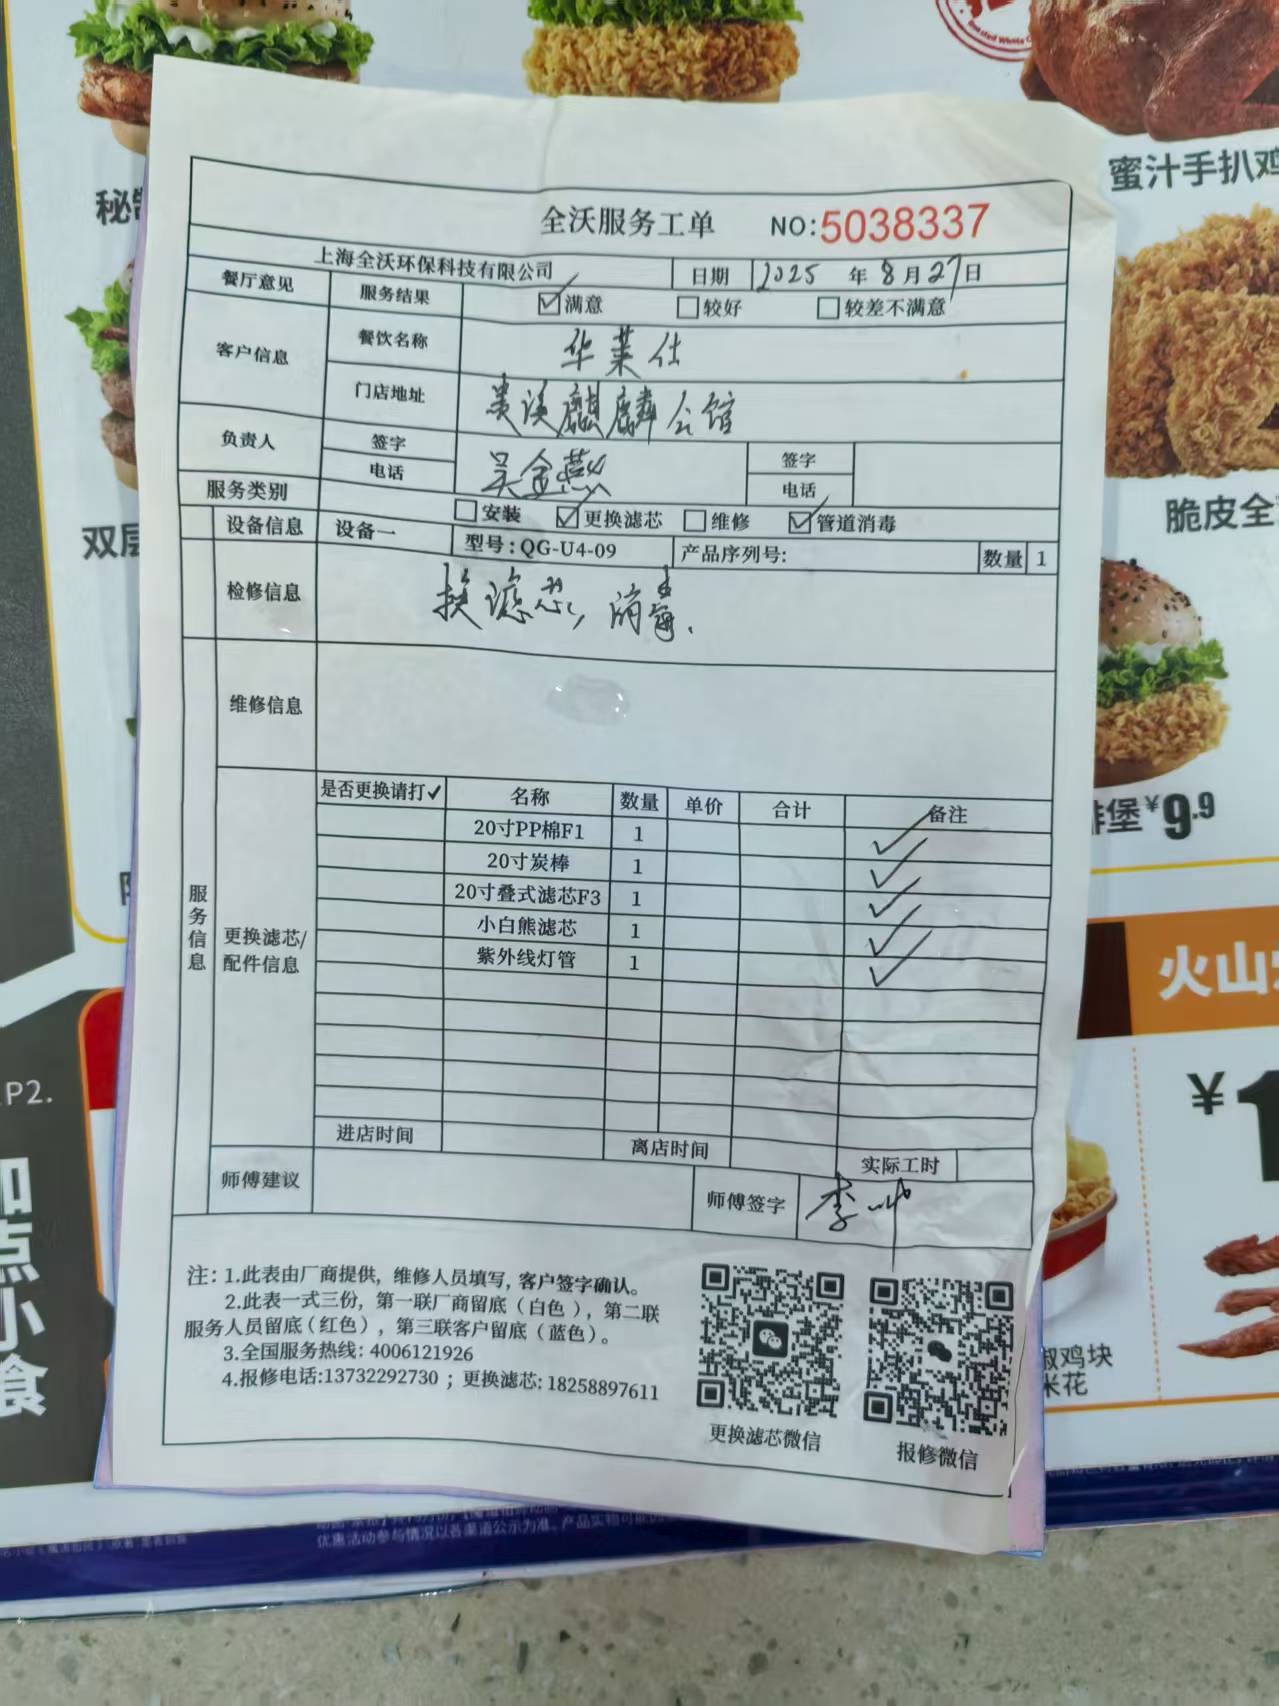 蜜汁手扒鸡
秘
双层
脆皮全
排堡¥9.9
火山
¥1
椒鸡块
米花
P2.
加点小食
全沃服务工单 NO:5038337
上海全沃环保科技有限公司 日期 2025 年 8 月 27 日
餐厅意见 服务结果 ☑满意 □较好 □较差不满意
客户信息 餐饮名称 华莱仕
门店地址 贵溪麒麟会馆
负责人 签字 吴金燕 签字
电话 电话
服务类别 □安装 ☑更换滤芯 □维修 ☑管道消毒
设备信息 设备一 型号:QG-U4-09 产品序列号: 数量 1
检修信息 换滤芯,消毒.
维修信息
服务信息
更换滤芯/
配件信息
是否更换请打✓ 名称 数量 单价 合计 备注
20寸PP棉F1 1 ✓
20寸炭棒 1 ✓
20寸叠式滤芯F3 1 ✓
小白熊滤芯 1 ✓
紫外线灯管 1 ✓
进店时间 离店时间 实际工时
师傅建议 师傅签字 李
注:1.此表由厂商提供,维修人员填写,客户签字确认。
2.此表一式三份,第一联厂商留底(白色),第二联
服务人员留底(红色),第三联客户留底(蓝色)。
3.全国服务热线: 4006121926
4.报修电话:13732292730 ; 更换滤芯: 18258897611
更换滤芯微信
报修微信
优惠活动参与情况以各渠道公示为准。产品实物可能